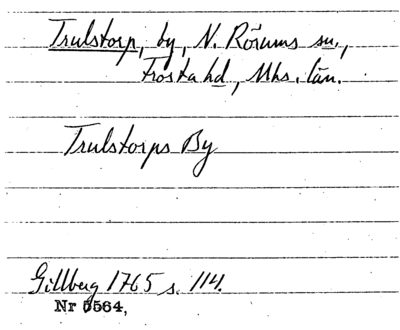 Trulstorp, by, N. Rörums sn.,
Frosta hd, Mhs. län.
Trulstorps By
Gillberg 1765 s. 114.
Nr 5564,